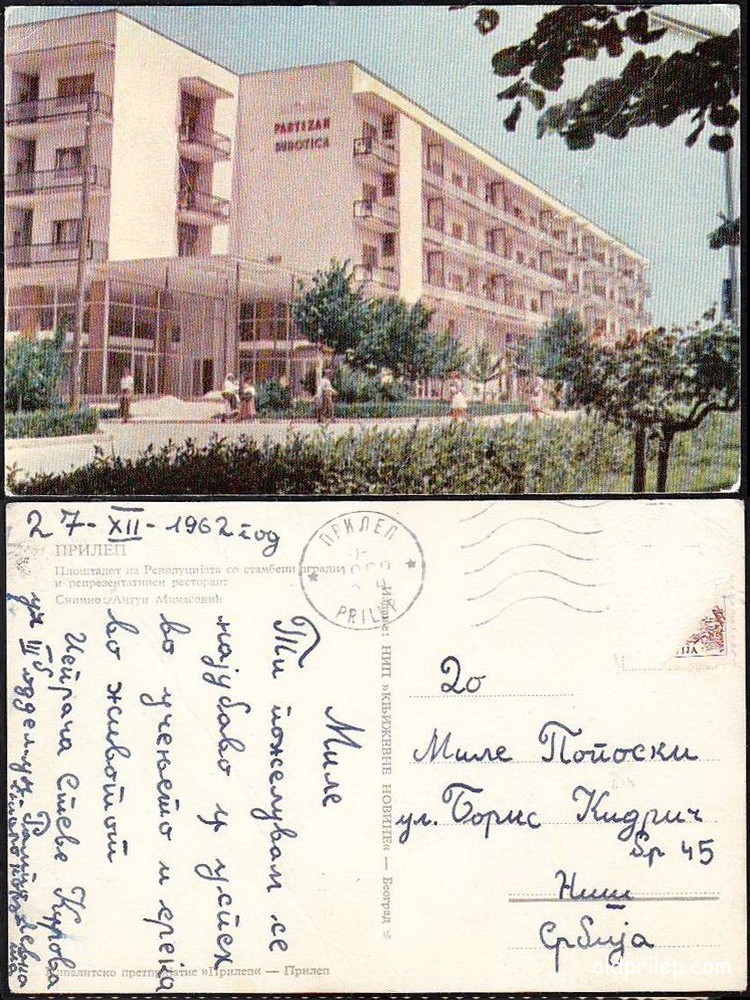 PARTIZAN
SUBOTICA
27-XII-1962 год
ПРИЛЕП
Плоштадот на Револуцијата со стамбени згради
и репрезентативен ресторант
Снимио: Антун Миласовић
ПРИЛЕП
PRILEP
Миле
Ти пожелувам се
најубаво и успех
во учењето и среќа
во животот
Испраќа Стеве
уч III одделу
Издање: НИП »КЊИЖЕВНЕ НОВИНЕ« — Београд
До
Миле Попоски
ул. Борис Кидрич
Бр 45
Ниш
Србија
претпријатие »Прилеп« — Прилеп
oldprilep.com